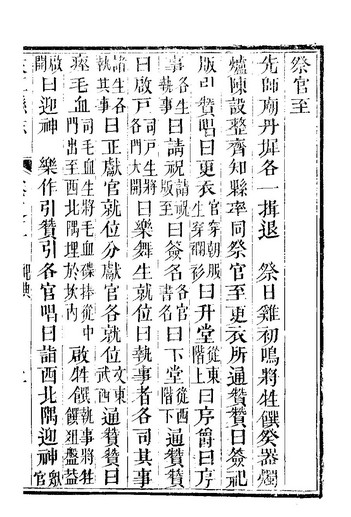 祭官至
先師廟丹墀各一揖退　祭日雞初鳴將牲饌祭器燭
爐陳設整齊知縣率同祭官至更衣所通贊贊曰簽祀
版引贊唱曰更衣官穿朝服生穿襴衫曰升堂從東階上曰序爵曰序
事各生執事曰請祝請祝版至曰簽名各官書名曰下堂從西階下通贊贊
曰啟戶司戶生將各門大開曰樂舞生就位曰執事者各司其事
諸生各執其事曰正獻官就位分獻官各就位文東武西通贊贊曰
瘞毛血司毛血生將毛血碟捧從中門出至西北隅埋於坎內啟牲饌執事將牲饌俎盤蓋
開曰迎神　樂作引贊引各官唱曰詣西北隅迎神官